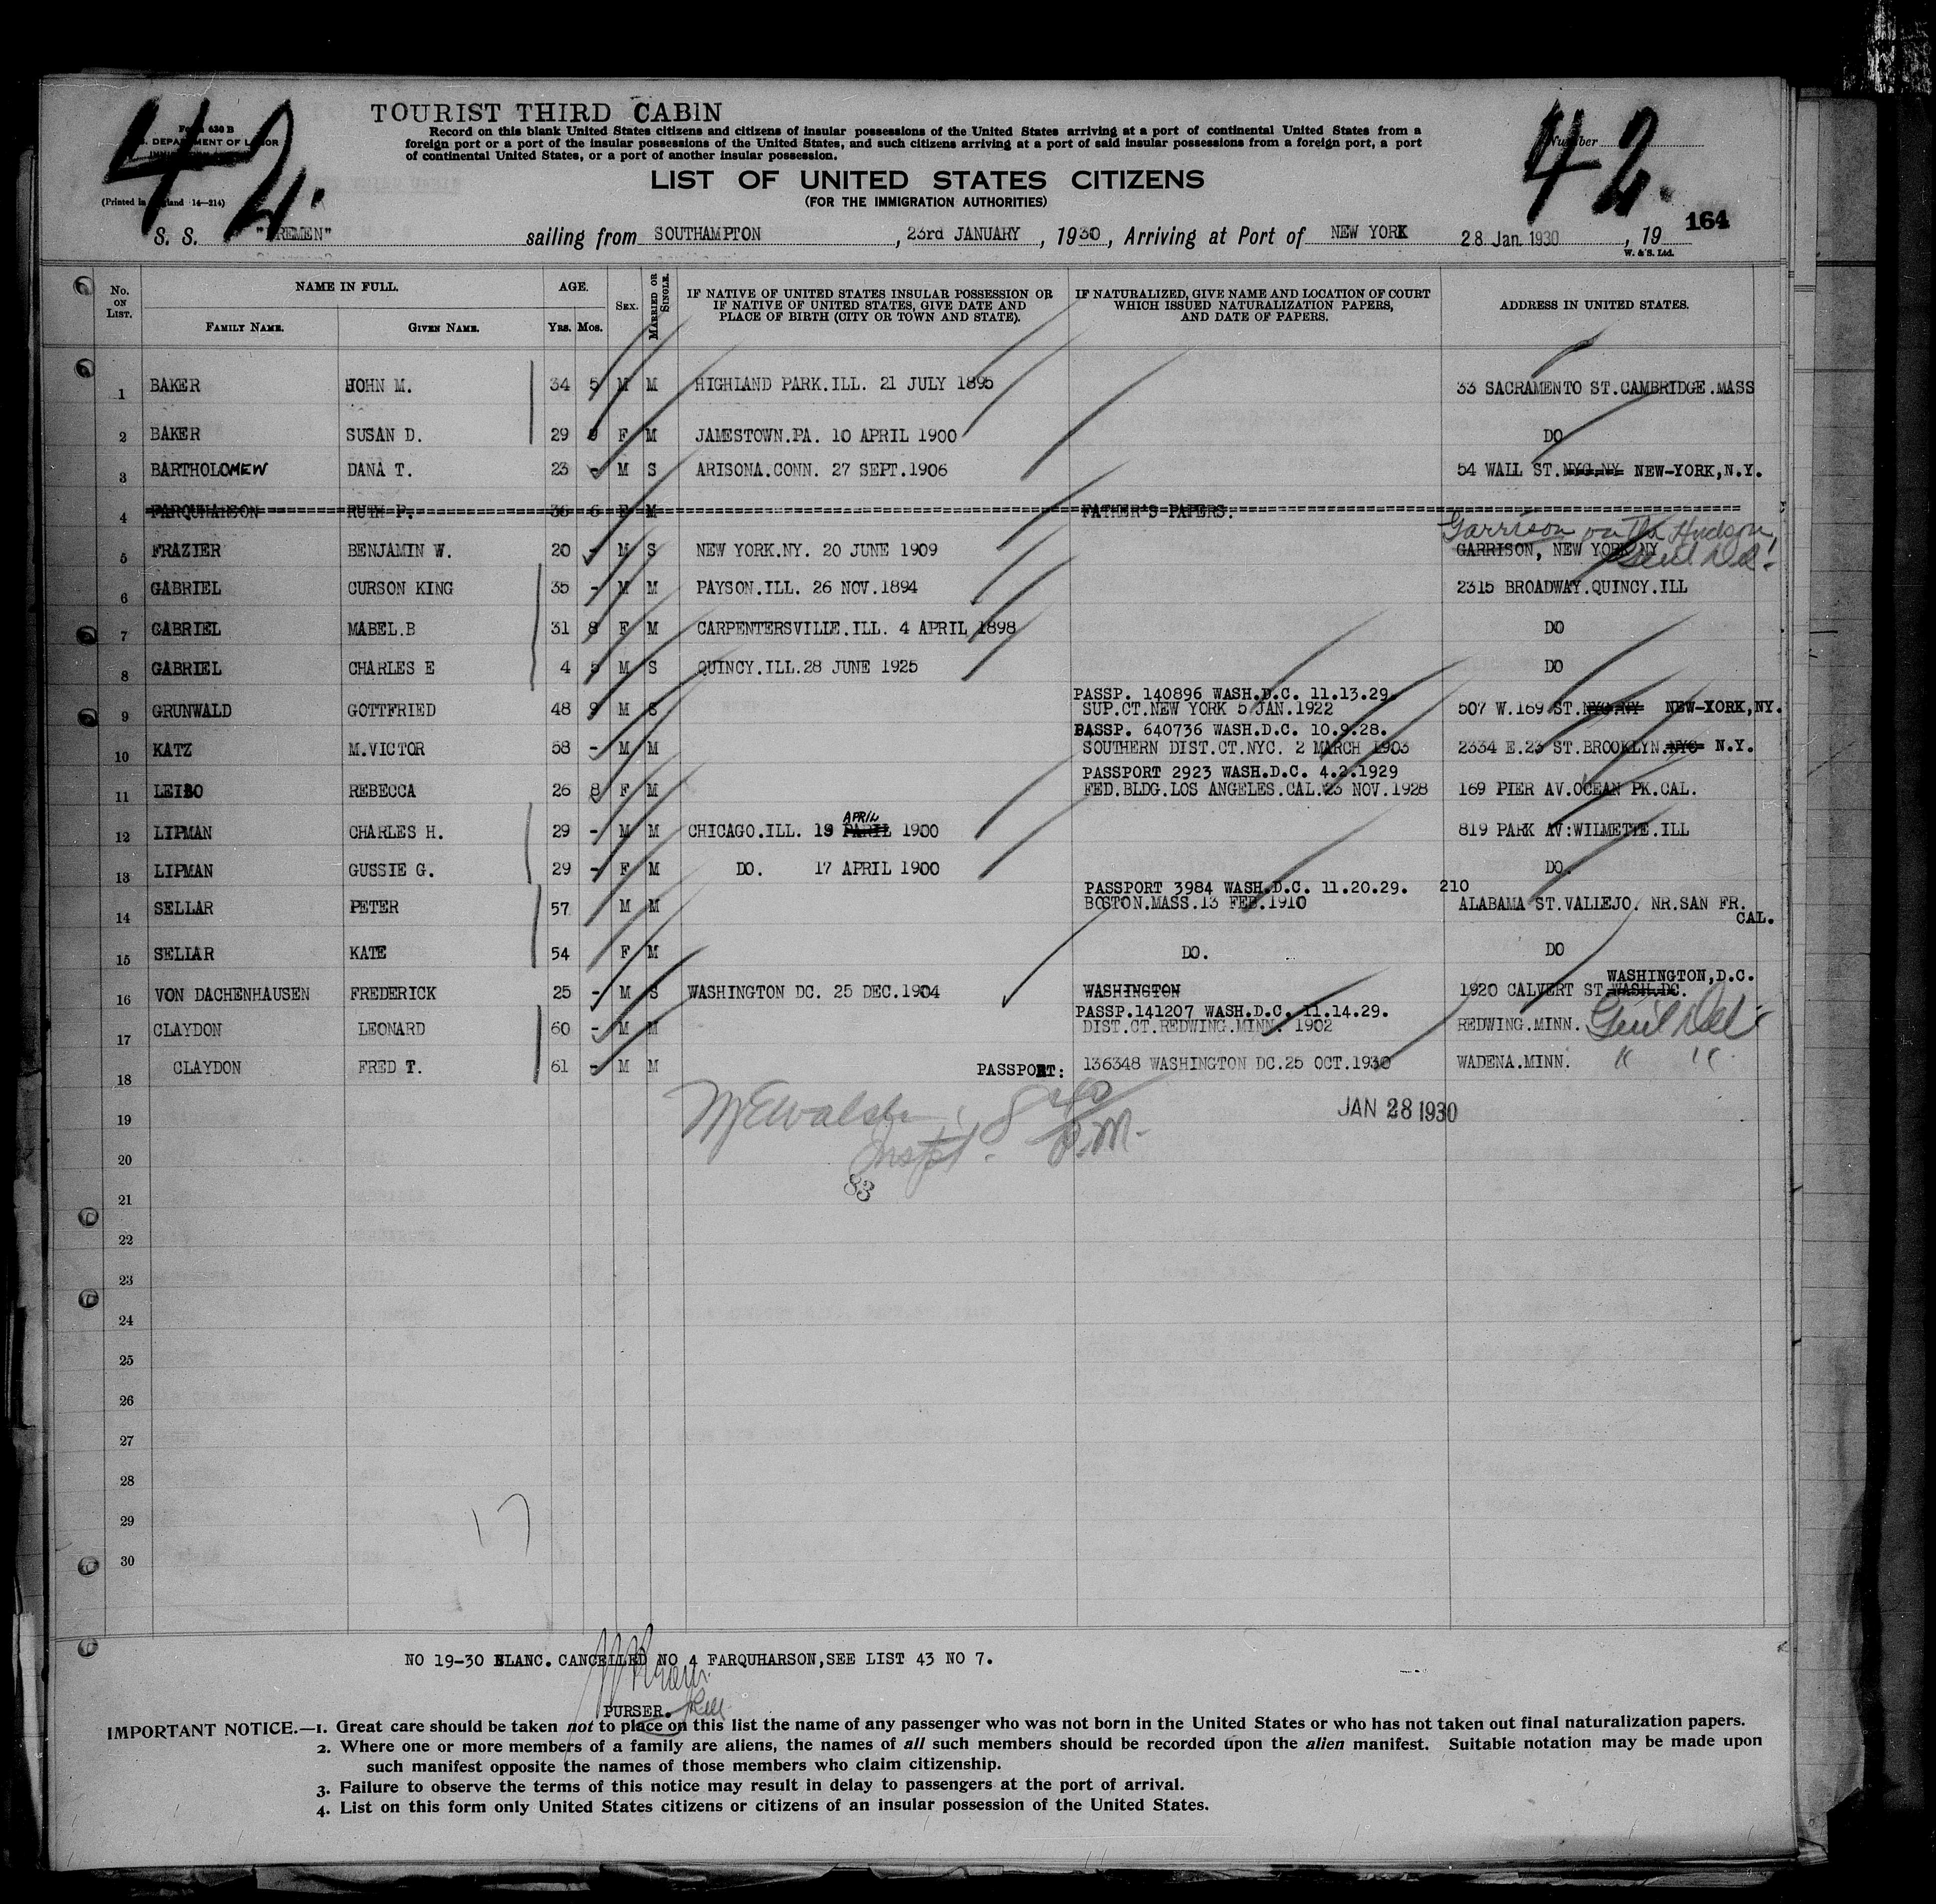 42.
42.
TOURIST THIRD CABIN
Form 630 B
DEPARTMENT OF LABOR
(Printed in England 14—214)
Number
Record on this blank United States citizens and citizens of insular possessions of the United States arriving at a port of continental United States from a
foreign port or a port of the insular possessions of the United States, and such citizens arriving at a port of said insular possessions from a foreign port, a port
of continental United States, or a port of another insular possession.
LIST OF UNITED STATES CITIZENS
(FOR THE IMMIGRATION AUTHORITIES)
164
S. S. "BREMEN" sailing from SOUTHAMPTON, 23rd JANUARY, 1930, Arriving at Port of NEW YORK 28 Jan. 1930, 19
W. & S. Ltd.
No. ON LIST. NAME IN FULL. FAMILY NAME. GIVEN NAME. AGE. YRS. MOS. SEX. MARRIED OR SINGLE. IF NATIVE OF UNITED STATES INSULAR POSSESSION OR IF NATIVE OF UNITED STATES, GIVE DATE AND PLACE OF BIRTH (CITY OR TOWN AND STATE). IF NATURALIZED, GIVE NAME AND LOCATION OF COURT WHICH ISSUED NATURALIZATION PAPERS, AND DATE OF PAPERS. ADDRESS IN UNITED STATES.
1 BAKER JOHN M. 34 5 M M HIGHLAND PARK.ILL. 21 JULY 1895 33 SACRAMENTO ST.CAMBRIDGE.MASS
2 BAKER SUSAN D. 29 9 F M JAMESTOWN.PA. 10 APRIL 1900 DO
3 BARTHOLOMEW DANA T. 23 - M S ARISONA.CONN. 27 SEPT.1906 54 WALL ST.NYC.NY NEW-YORK,N.Y.
4 FARQUHARSON RUTH P. 36 6 F M FATHER'S PAPERS.
Garrison on the Hudson
5 FRAZIER BENJAMIN W. 20 - M S NEW YORK.NY. 20 JUNE 1909 GARRISON, NEW YORK NY
Genl Del!
6 GABRIEL CURSON KING 35 - M M PAYSON.ILL. 26 NOV.1894 2315 BROADWAY.QUINCY.ILL
7 GABRIEL MABEL.B 31 8 F M CARPENTERSVILLE.ILL. 4 APRIL 1898 DO
8 GABRIEL CHARLES E 4 5 M S QUINCY.ILL.28 JUNE 1925 DO
PASSP. 140896 WASH.D.C. 11.13.29.
9 GRUNWALD GOTTFRIED 48 9 M S SUP.CT.NEW YORK 5 JAN.1922 507 W.169 ST.NYC NY NEW-YORK,NY.
PASSP. 640736 WASH.D.C. 10.9.28.
10 KATZ M.VICTOR 58 - M M SOUTHERN DIST.CT.NYC. 2 MARCH 1903 2334 E.23 ST.BROOKLYN.NYC N.Y.
PASSPORT 2923 WASH.D.C. 4.2.1929
11 LEIBO REBECCA 26 8 F M FED.BLDG.LOS ANGELES.CAL.23 NOV.1928 169 PIER AV.OCEAN PK.CAL.
APRIL
12 LIPMAN CHARLES H. 29 - M M CHICAGO.ILL. 19 PARIL 1900 819 PARK AV:WILMETTE.ILL
13 LIPMAN GUSSIE G. 29 - F M DO. 17 APRIL 1900 DO.
PASSPORT 3984 WASH.D.C. 11.20.29. 210
14 SELLAR PETER 57 M M BOSTON.MASS.13 FEB.1910 ALABAMA ST.VALLEJO. NR.SAN FR.
CAL.
15 SELLAR KATE 54 F M DO. DO
WASHINGTON,D.C.
16 VON DACHENHAUSEN FREDERICK 25 - M S WASHINGTON DC. 25 DEC.1904 WASHINGTON 1920 CALVERT ST.WASH.DC.
PASSP.141207 WASH.D.C. 11.14.29.
17 CLAYDON LEONARD 60 - M M DIST.CT.REDWING.MINN. 1902 REDWING.MINN. Genl Del
18 CLAYDON FRED T. 61 - M M PASSPORT: 136348 WASHINGTON DC.25 OCT.1930 WADENA.MINN. " "
19 JAN 28 1930
McWalsh Inspt. 8 40 P.M.
83
20
21
22
23
24
25
26
27
28
29
30
17
NO 19-30 BLANC. CANCELLED NO 4 FARQUHARSON,SEE LIST 43 NO 7.
PURSER.
IMPORTANT NOTICE.—1. Great care should be taken not to place on this list the name of any passenger who was not born in the United States or who has not taken out final naturalization papers.
2. Where one or more members of a family are aliens, the names of all such members should be recorded upon the alien manifest. Suitable notation may be made upon
such manifest opposite the names of those members who claim citizenship.
3. Failure to observe the terms of this notice may result in delay to passengers at the port of arrival.
4. List on this form only United States citizens or citizens of an insular possession of the United States.